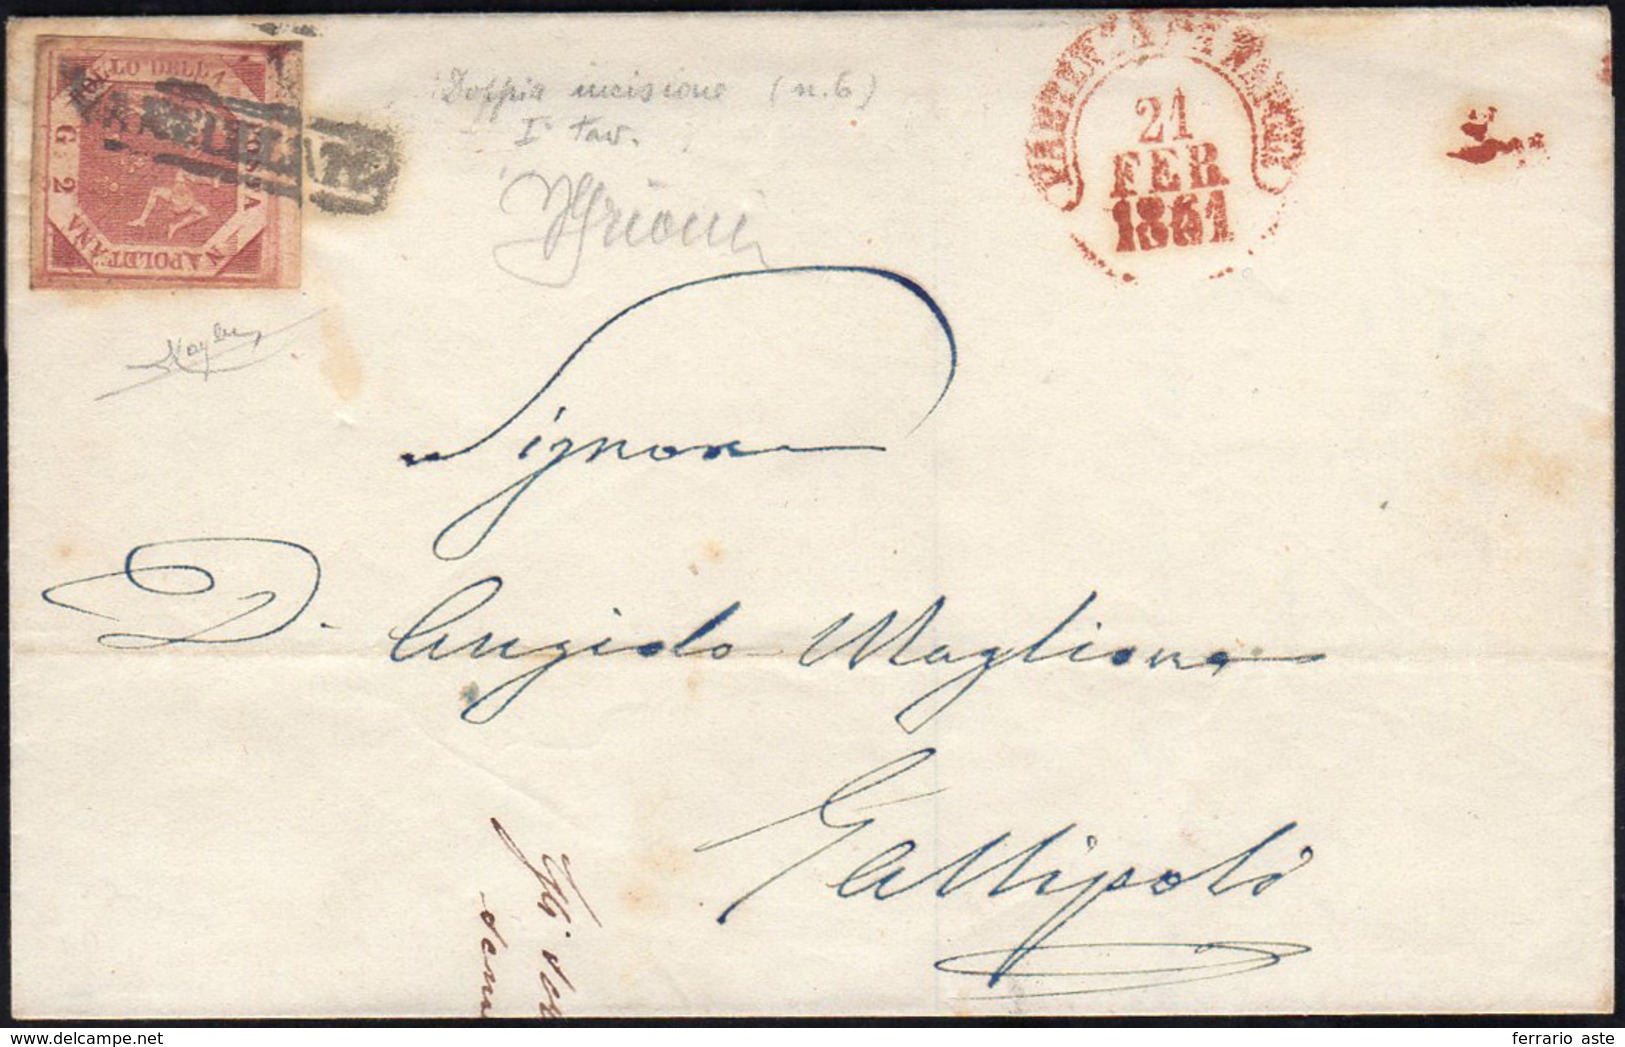 BOLLO DELLA
POSTA
NAPOLETANA
G 2
ANNULLATO
Doppia incisione (n. 6)
I tav.
21
FEB
1861
Signore
D. Angiolo Maglione
Gallipoli
ferrario aste